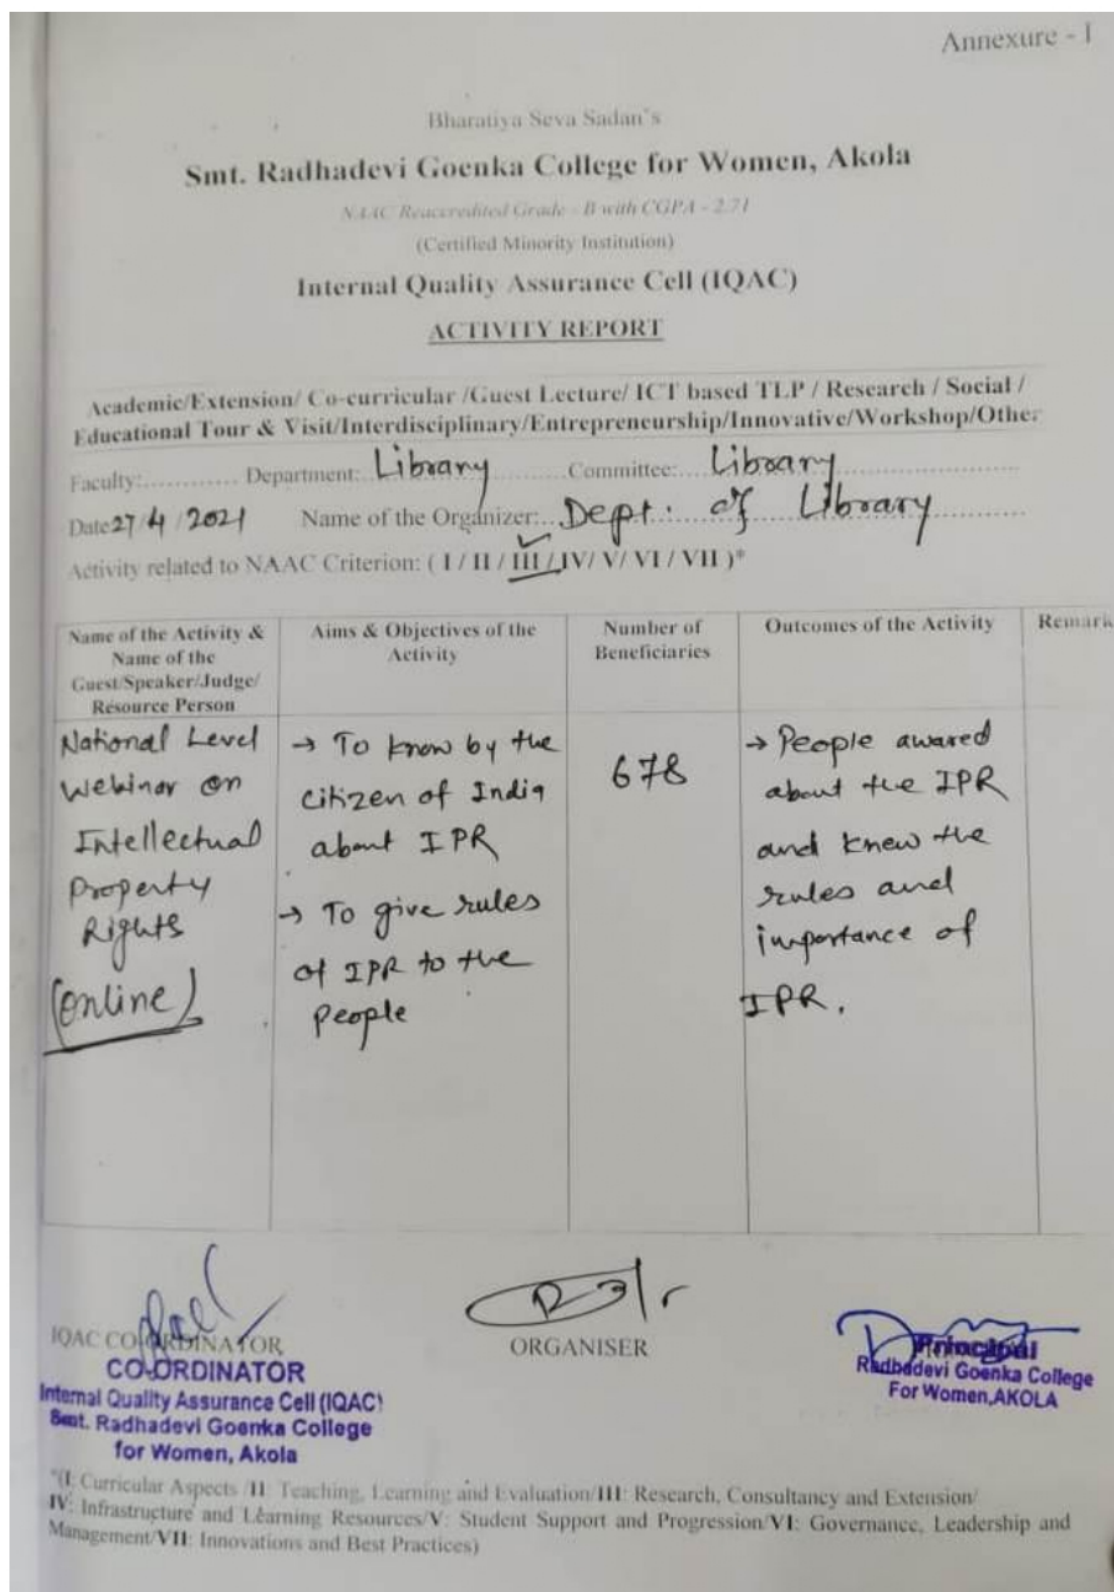 Annexure - I
Bharatiya Seva Sadan's
Smt. Radhadevi Goenka College for Women, Akola
NAAC Reaccredited Grade - B with CGPA - 2.71
(Certified Minority Institution)
Internal Quality Assurance Cell (IQAC)
ACTIVITY REPORT
Academic/Extension/ Co-curricular /Guest Lecture/ ICT based TLP / Research / Social /
Educational Tour & Visit/Interdisciplinary/Entrepreneurship/Innovative/Workshop/Other
Faculty:............ Department: Library Committee: Library
Date 27/4/2021 Name of the Organizer: Dept. of Library
Activity related to NAAC Criterion: ( I / II / III / IV/ V/ VI / VII )*
Name of the Activity &
Name of the
Guest/Speaker/Judge/
Resource Person
Aims & Objectives of the
Activity
Number of
Beneficiaries
Outcomes of the Activity
Remark
National Level
Webinar on
Intellectual
Property
Rights
(Online)
→ To know by the
citizen of India
about IPR
→ To give rules
of IPR to the
People
678
→ People awared
about the IPR
and knew the
rules and
importance of
IPR.
IQAC CO-ORDINATOR
CO-ORDINATOR
Internal Quality Assurance Cell (IQAC)
Smt. Radhadevi Goenka College
for Women, Akola
ORGANISER
Principal
Radhadevi Goenka College
For Women,AKOLA
*(I: Curricular Aspects /II: Teaching, Learning and Evaluation/III: Research, Consultancy and Extension/
IV: Infrastructure and Learning Resources/V: Student Support and Progression/VI: Governance, Leadership and
Management/VII: Innovations and Best Practices)